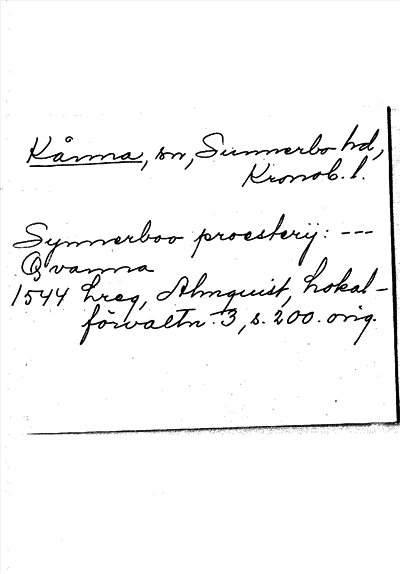 Kånna, sn, Sunnerbo hd,
Kronob. l.
Synnerboo proesterij: ---
Qvanna
1544 hreg, Almquist, Lokal-
förvaltn. 3, s. 200. orig.